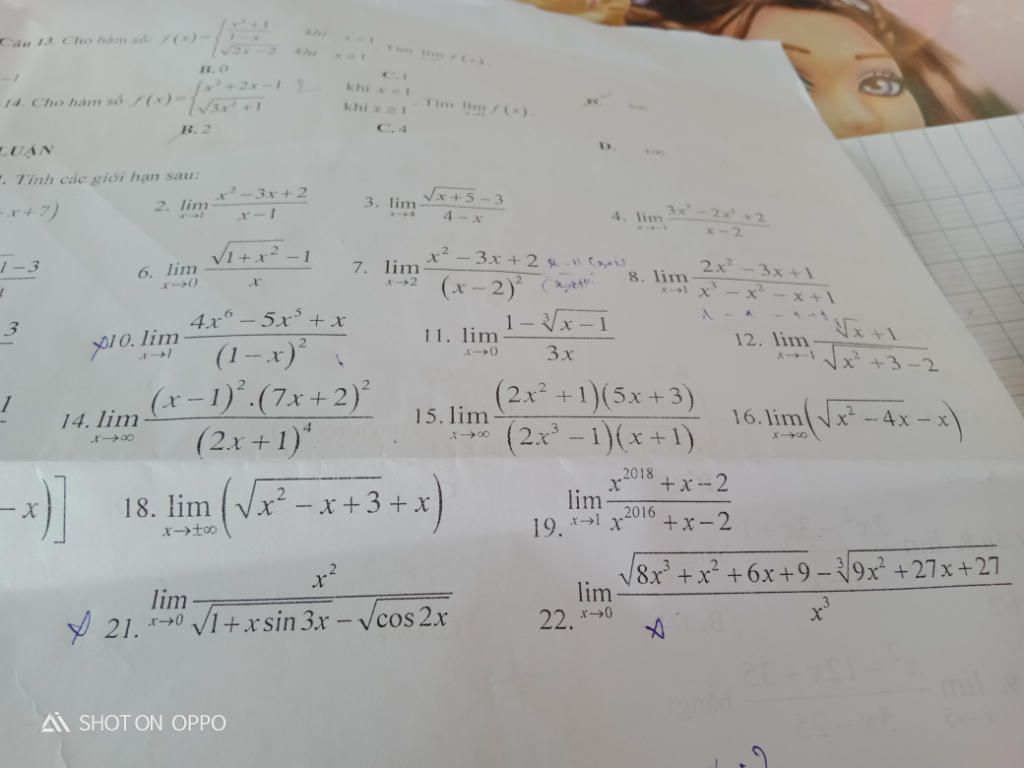 Câu 13. Cho hàm số: f(x) = { (x² + 1)/(1 − x) khi x < 1; √(2x − 2) khi x ≥ 1. Tìm lim f(x).
−1 B. 0 C. 1 D. +∞
14. Cho hàm số f(x) = { x² + 2x − 1 khi x < 1; √(3x² + 1) khi x ≥ 1. Tìm lim_{x→1} f(x).
B. 2 C. 4 D. +∞
LUẬN
1. Tính các giới hạn sau:
−x + 7) 2. lim_{x→1} (x² − 3x + 2)/(x − 1) 3. lim_{x→4} (√(x + 5) − 3)/(4 − x) 4. lim_{x→−1} (3x³ − 2x² + 2)/(x − 2)
1 − 3 6. lim_{x→0} (√(1 + x²) − 1)/x 7. lim_{x→2} (x² − 3x + 2)/(x − 2)² 8. lim_{x→1} (2x² − 3x + 1)/(x³ − x² − x + 1)
3 10. lim_{x→1} (4x⁶ − 5x⁵ + x)/(1 − x)² 11. lim_{x→0} (1 − ∛(x − 1))/(3x) 12. lim_{x→−1} (∛x + 1)/(√(x² + 3) − 2)
1 14. lim_{x→∞} ((x − 1)².(7x + 2)²)/(2x + 1)⁴ 15. lim_{x→∞} ((2x² + 1)(5x + 3))/((2x³ − 1)(x + 1)) 16. lim_{x→∞} (√(x² − 4x) − x)
− x)] 18. lim_{x→±∞} (√(x² − x + 3) + x) 19. lim_{x→1} (x²⁰¹⁸ + x − 2)/(x²⁰¹⁶ + x − 2)
21. lim_{x→0} x²/(√(1 + x sin 3x) − √(cos 2x)) 22. lim_{x→0} (√(8x³ + x² + 6x + 9) − ∛(9x² + 27x + 27))/x³
SHOT ON OPPO